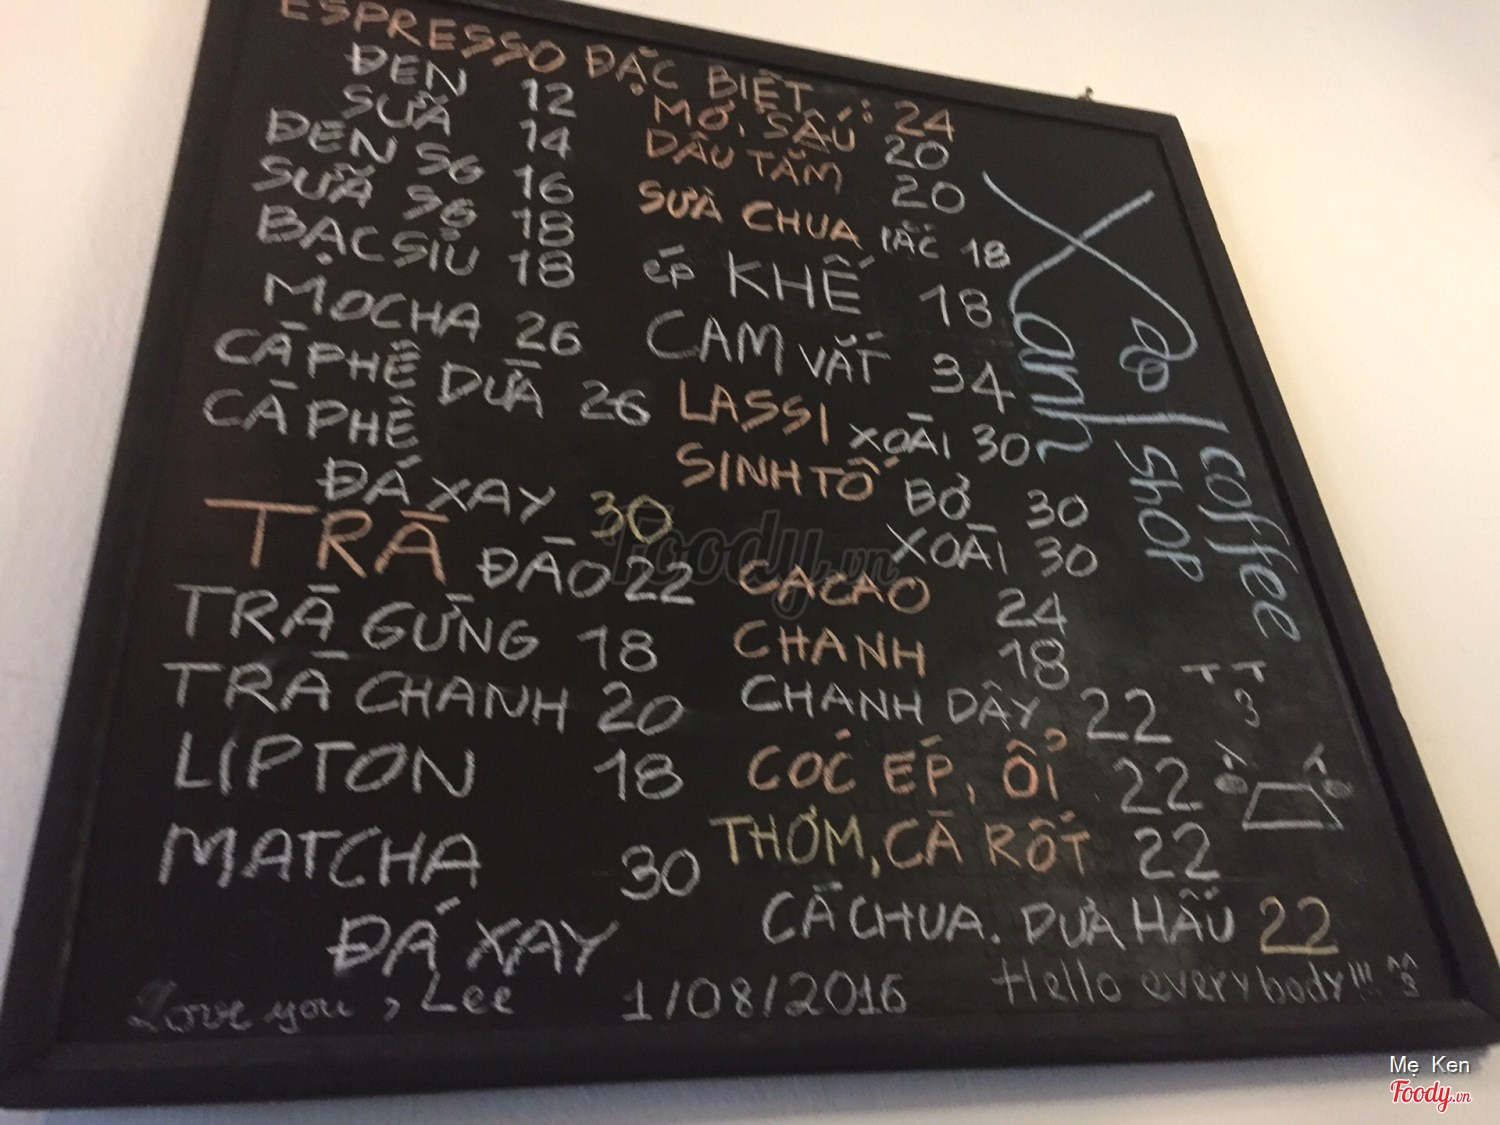 ESPRESSO ĐẶC BIỆT : 24
ĐEN 12
SỮA 14
ĐEN SG 16
SỮA SG 18
BẠC SỈU 18
MOCHA 26
CÀ PHÊ DỪA 26
CÀ PHÊ
ĐÁ XAY 30
TRÀ ĐÀO 22
TRÀ GỪNG 18
TRÀ CHANH 20
LIPTON 18
MATCHA 30
ĐÁ XAY
MƠ, SẤU 20
DÂU TẰM 20
SỮA CHUA LẮC 18
ÉP KHẾ 18
CAM VẮT 34
LASSI XOÀI 30
SINH TỐ BƠ 30
XOÀI 30
CACAO 24
CHANH 18
CHANH DÂY 22
CÓC ÉP, ỔI 22
THƠM, CÀ RỐT 22
CÀ CHUA. DƯA HẤU 22
Xanh
coffee
shop
Love you, Lee
1/08/2016
Hello everybody!!! ^3^
Foody.vn
Mẹ Ken
Foody.vn